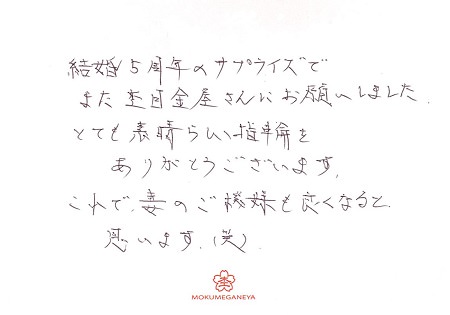 結婚5周年のサプライズで
また杢目金屋さんにお願いしました。
とても素晴らしい指輪を
ありがとうございます。
これで、妻のご機嫌も良くなると
思います。(笑)
杢
MOKUMEGANEYA